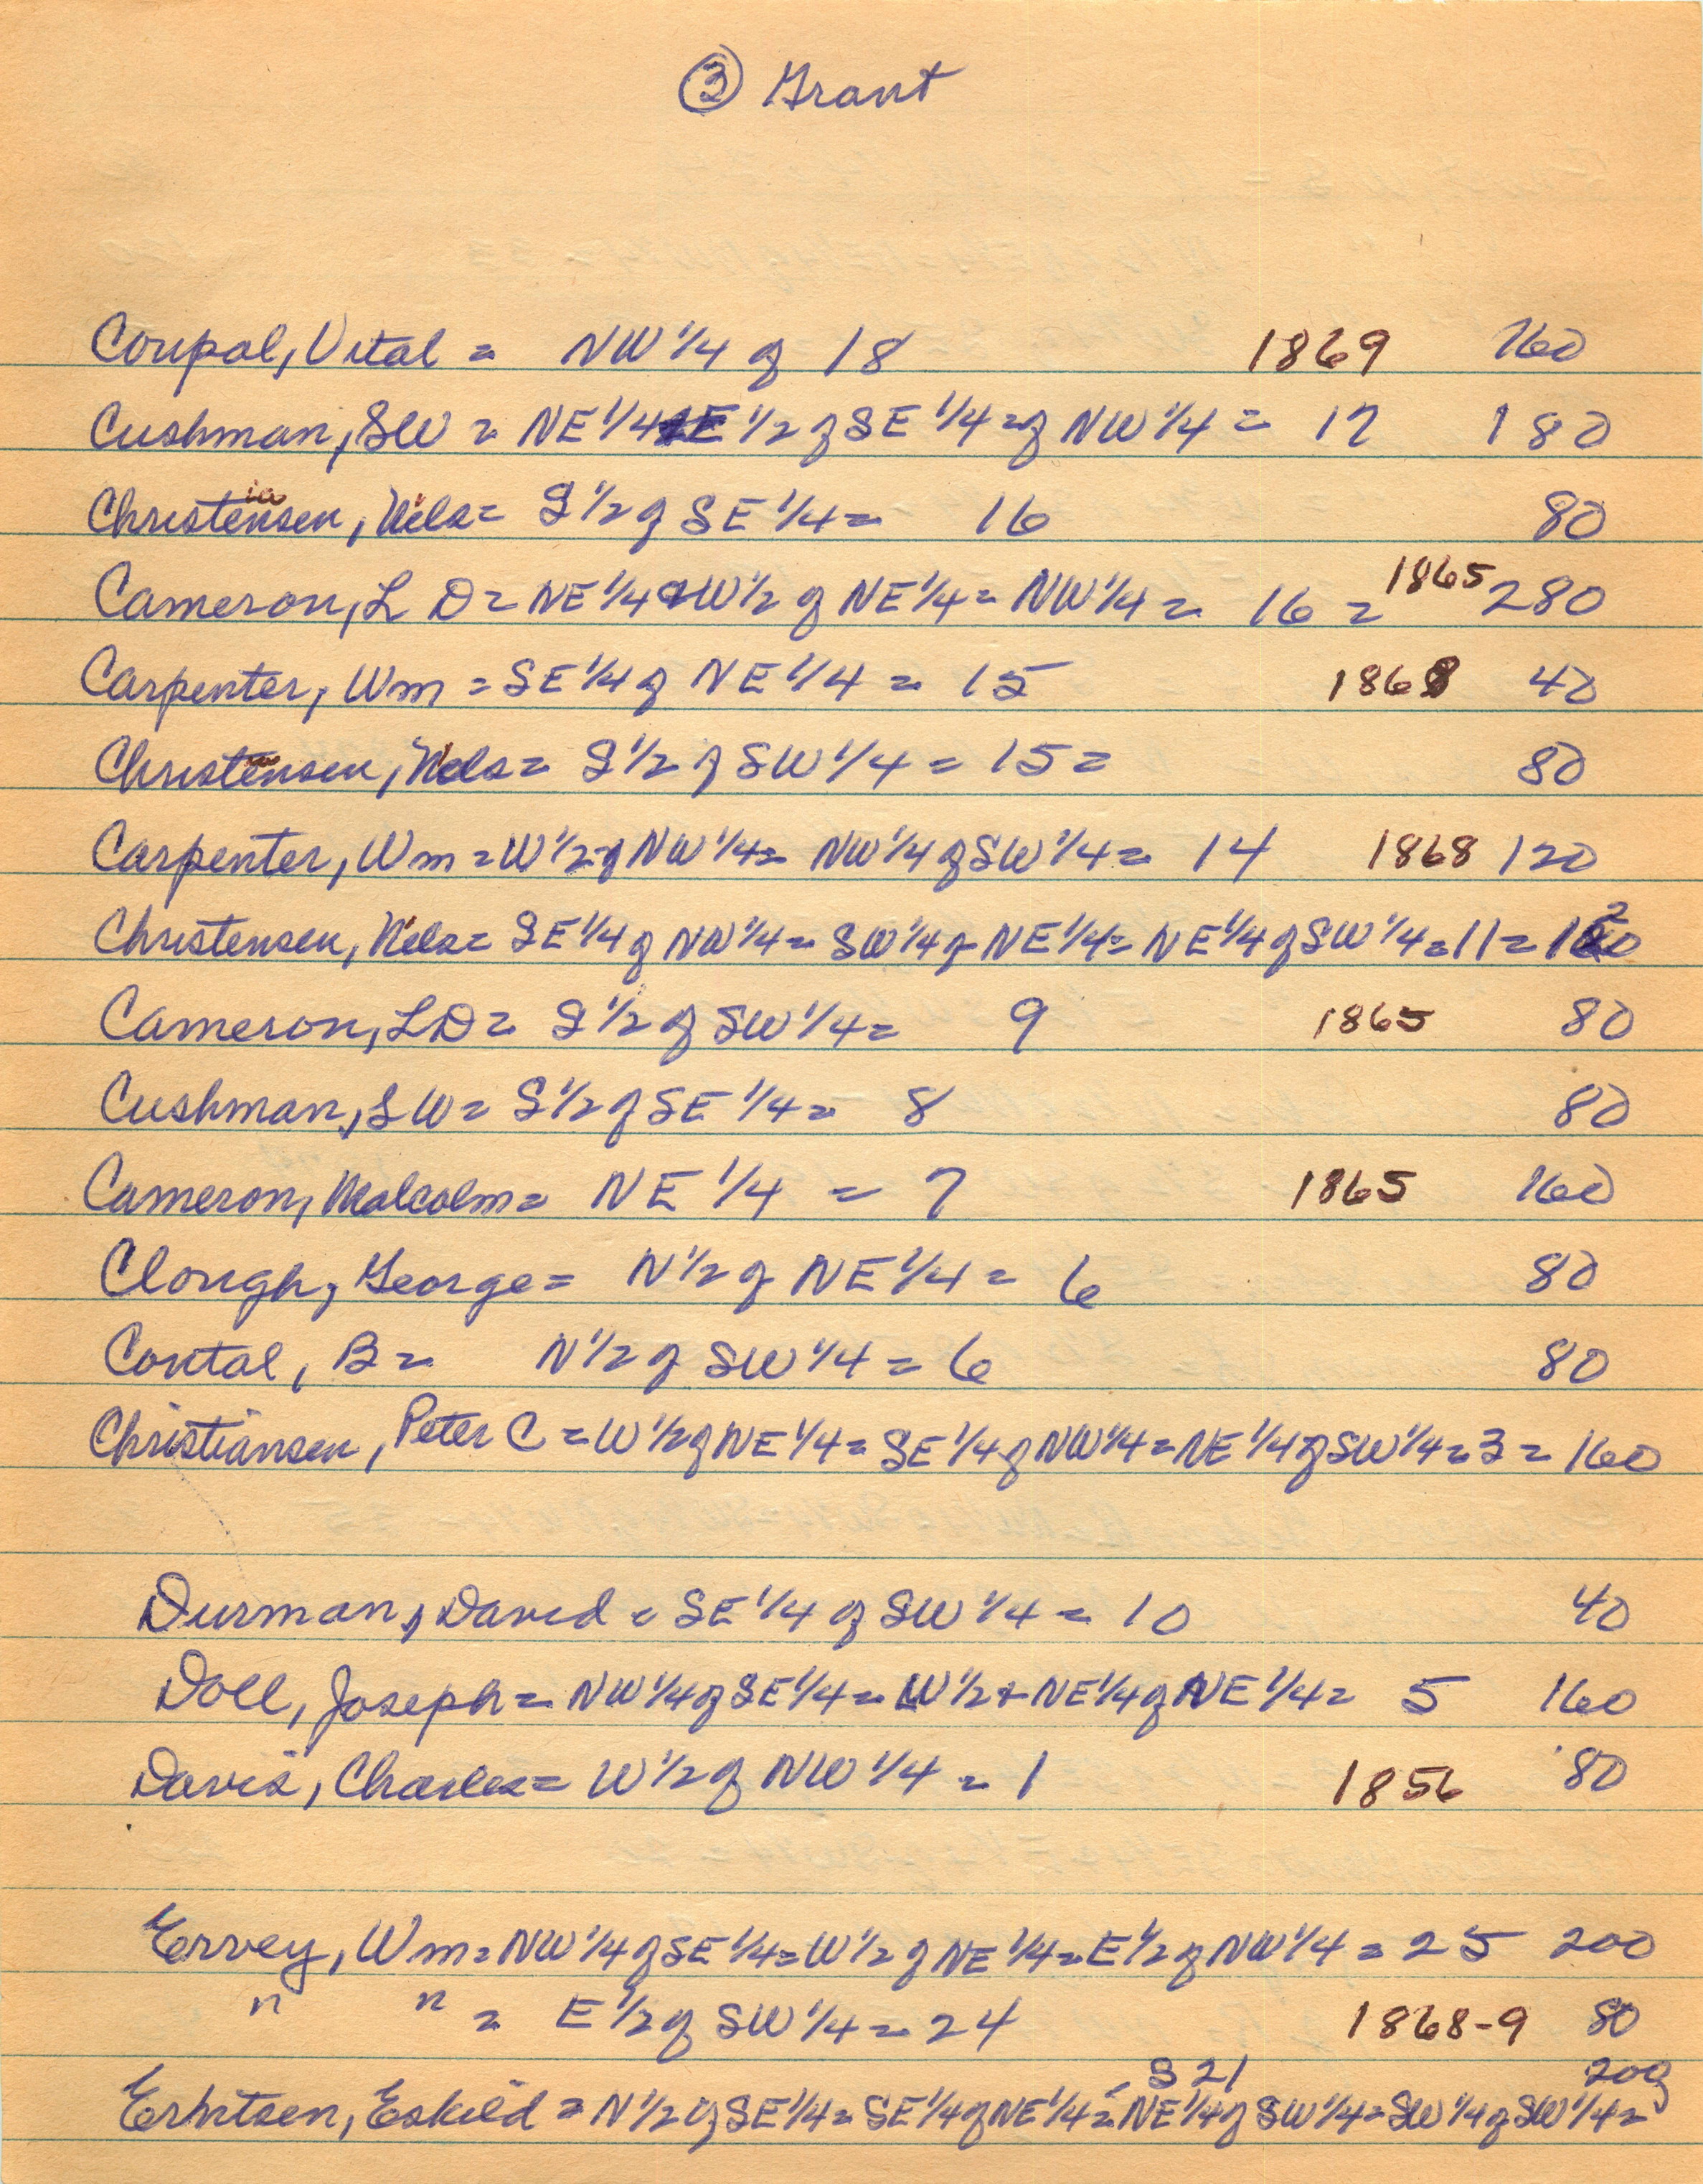 ③ Grant
Coupal, Vital = NW 1/4 of 18 1869 160
Cushman, SW = NE 1/4 E 1/2 of SE 1/4 = of NW 1/4 = 17 180
Christensen, Nels = S 1/2 of SE 1/4 = 16 80
Cameron, L D = NE 1/4 & W 1/2 of NE 1/4 = NW 1/4 = 16 = 1865 280
Carpenter, Wm = SE 1/4 of NE 1/4 = 15 1868 40
Christensen, Nels = S 1/2 of SW 1/4 = 15 = 80
Carpenter, Wm = W 1/2 of NW 1/4 = NW 1/4 of SW 1/4 = 14 1868 120
Christensen, Nels = SE 1/4 of NW 1/4 = SW 1/4 of NE 1/4 = NE 1/4 of SW 1/4 = 11 = 120
Cameron, LD = S 1/2 of SW 1/4 = 9 1865 80
Cushman, SW = S 1/2 of SE 1/4 = 8 80
Cameron, Malcolm = NE 1/4 = 7 1865 160
Clough, George = N 1/2 of NE 1/4 = 6 80
Contal, B = N 1/2 of SW 1/4 = 6 80
Christiansen, Peter C = W 1/2 of NE 1/4 = SE 1/4 of NW 1/4 = NE 1/4 of SW 1/4 = 3 = 160
Durman, David = SE 1/4 of SW 1/4 = 10 40
Doll, Joseph = NW 1/4 of SE 1/4 = W 1/2 + NE 1/4 of NE 1/4 = 5 160
Davis, Charles = W 1/2 of NW 1/4 = 1 1856 80
Ervey, Wm = NW 1/4 of SE 1/4 = W 1/2 of NE 1/4 = E 1/2 of NW 1/4 = 25 200
" " = E 1/2 of SW 1/4 = 24 1868-9 80
S 21 200
Erhtsen, Eskild = N 1/2 of SE 1/4 = SE 1/4 of NE 1/4 = NE 1/4 of SW 1/4 = SW 1/4 of SW 1/4 =